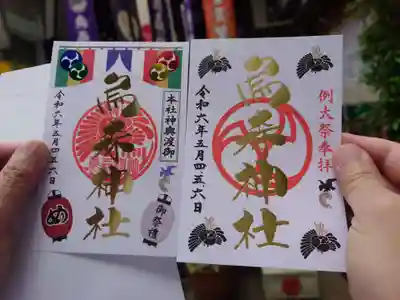 本社神輿渡御
御祭禮
烏森神社
令和六年五月四、五、六日
例大祭奉拝
烏森神社
令和六年五月四、五、六日